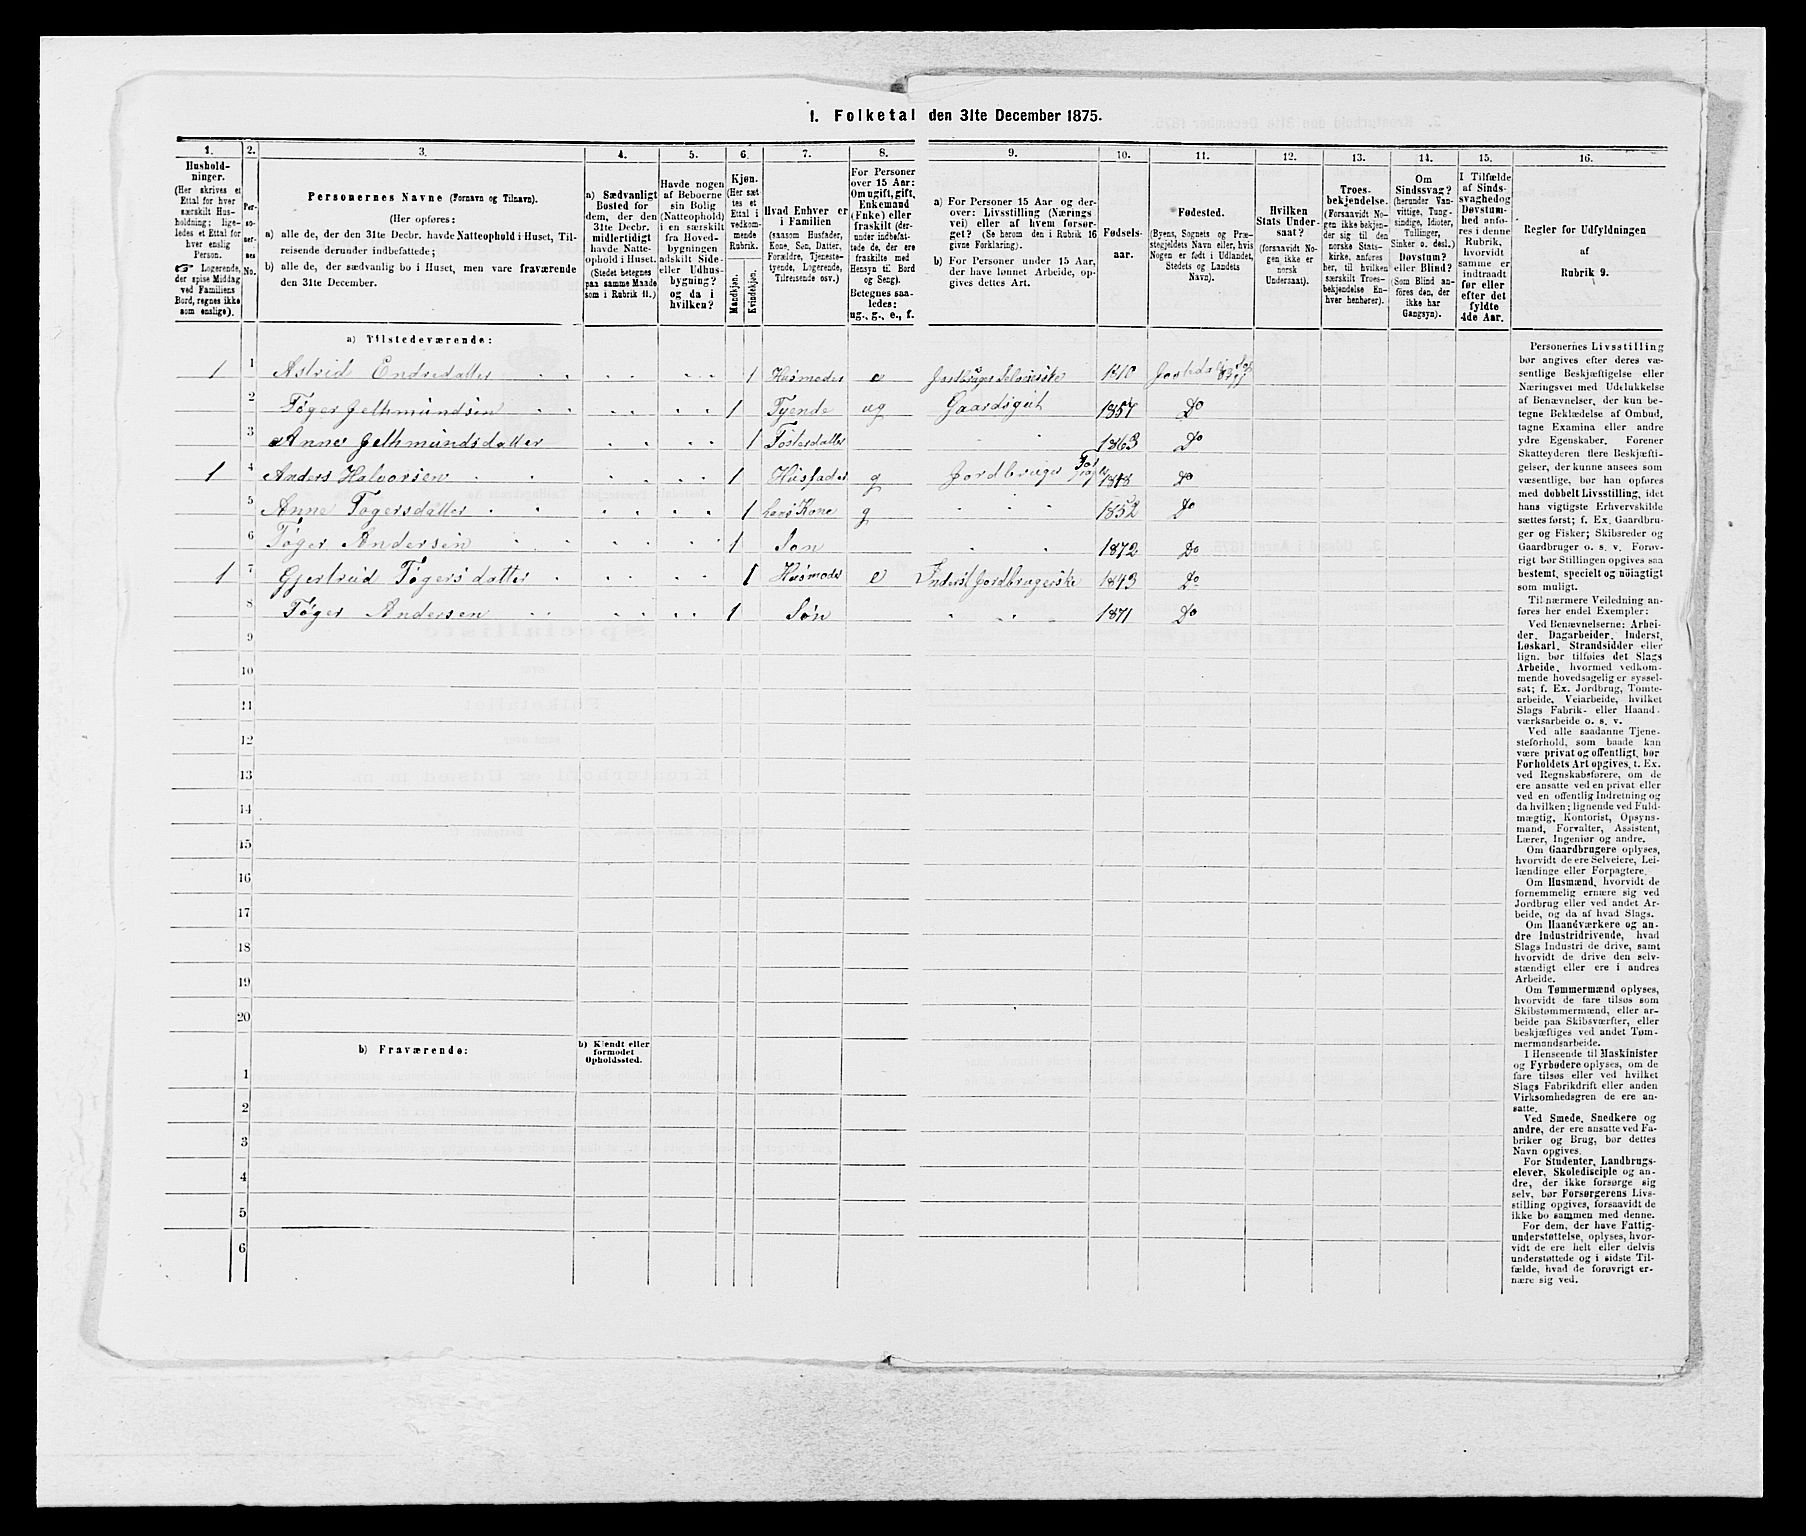 1. Folketal den 31te December 1875.
1. 2. 3. 4. 5. 6. 7. 8. 9. 10. 11. 12. 13. 14. 15. 16.
Hushold-
ninger.
(Her skrives et
Ettal for hver
særskilt Hus-
holdning; lige-
ledes et Ettal for
hver enslig
Person.
☞ Logerende,
der spise Middag
ved Familiens
Bord, regnes ikke
som enslige).
Per-
so-
ner-
nes
No.
Personernes Navne (Fornavn og Tilnavn).
(Her opføres:
a) alle de, der den 31te Decbr. havde Natteophold i Huset, Til-
reisende derunder indbefattede;
b) alle de, der sædvanlig bo i Huset, men vare fraværende
den 31te December.
a) Sædvanligt
Bosted for
dem, der den
31te Decbr.
midlertidigt
havde Natte-
ophold i Huset.
(Stedet betegnes
paa samme Maade
som i Rubrik 11.)
Havde nogen
af Beboerne
sin Bolig
(Natteophold)
i en særskilt
fra Hoved-
bygningen
adskilt Side-
eller Udhus-
bygning?
og da i
hvilken?
Kjøn.
(Her sæt-
tes et
Ettal i
vedkom-
mende
Rubrik.
Mandkjøn.
Kvindekjøn.
Hvad Enhver er
i Familien
(saasom Husfader,
Kone, Søn, Datter,
Forældre, Tjeneste-
tyende, Logerende,
Tilreisende osv.)
For Personer
over 15 Aar:
Om ugift, gift,
Enkemand
(Enke) eller
fraskilt (der-
under indbefat-
tede de, der ere
fraskilte med
Hensyn til Bord
og Seng).
Betegnes saa-
ledes:
ug., g., e., f.
a) For Personer 15 Aar og der-
over: Livsstilling (Nærings-
vei) eller af hvem forsør-
get? (Se herom den i Rubrik 16
givne Forklaring).
b) For Personer under 15 Aar,
der have lønnet Arbeide, op-
gives dettes Art.
Fødsels-
aar.
Fødested.
(Byens, Sognets og Præ-
stegjeldets Navn eller, hvis
Nogen er født i Udlandet,
Stedets og Landets
Navn).
Hvilken
Stats Under-
saat?
(forsaavidt No-
gen ikke er
norsk
Undersaat).
Troes-
bekjendelse.
(Forsaavidt No-
gen ikke bekjen-
der sig til den
norske Stats-
kirke, anføres
her, til hvilken
særskilt Troes-
bekjendelse En-
hver henhører).
Om
Sindssvag?
(herunder Van-
vittige, Tung-
sindige, Idioter,
Tullinger,
Sinker o. desl.)
Døvstum?
eller Blind?
(Som Blind an-
føres den, der
ikke har
Gangsyn).
I Tilfælde
af Sinds-
svaghed og
Døvstum-
hed anfø-
res i denne
Rubrik,
hvorvidt
samme er
indtraadt
før eller
efter det
fyldte
4de Aar.
Regler for Udfyldningen
af
Rubrik 9.
a) Tilstedeværende:
1 1 Astrid Endredatter 1 Husmoder e Jordbruger Selveierske 1810
2 Tøger Gethmundsen 1 Tyende ug Gaardsgut 1857 Do
3 Anne Gethmundsdatter 1 Fosterdatter 1863 Do
1 4 Anders Halvorsen 1 Husfader g Jordbruger 1848 Do
5 Anne Tøgersdatter 1 hans Kone g 1852 Do
6 Tøger Andersen 1 Søn 1872 Do
1 7 Gjertrud Tøgersdatter 1 Husmoder e Inderst Jordbrugerske 1843 Do
8 Tøger Andersen 1 Søn 1871 Do
9
10
11
12
13
14
15
16
17
18
19
20
b) Fraværende:
b) Kjendt eller
formodet
Opholdssted.
1
2
3
4
5
6
Personernes Livsstilling
bør angives efter deres væ-
sentlige Beskjæftigelse eller
Næringsvei med Udelukkelse
af Benævnelser, der kun be-
tegne Beklædelse af Ombud,
tagne Examina eller andre
ydre Egenskaber. Forener
Skatteyderen flere Beskjæfti-
gelser, der kunne ansees som
væsentlige, bør han opføres
med dobbelt Livsstilling, idet
hans vigtigste Erhvervskilde
sættes først; f. Ex. Gaardbru-
ger og Fisker; Skibsreder og
Gaardbruger o. s. v. Forøv-
rigt bør Stillingen opgives saa
bestemt, specielt og nøiagtigt
som muligt.
Til nærmere Veiledning an-
føres her endel Exempler:
Ved Benævnelserne: Arbei-
der, Dagarbeider, Inderst,
Løskarl, Strandsidder eller
lign. bør tilføies det Slags
Arbeide, hvormed vedkom-
mende hovedsagelig er syssel-
sat; f. Ex. Jordbrug, Tomte-
arbeide, Veiarbeide, hvilket
Slags Fabrik- eller Haand-
værksarbeide o. s. v.
Ved alle saadanne Tjene-
steforhold, som baade kan
være privat og offentligt, bør
Forholdets Art opgives, t. Ex.
ved Regnskabsførere, om de
ere ansatte ved en privat eller
ved en offentlig Indretning og
da hvilken; lignende ved Fuld-
mægtig, Kontorist, Opsyns-
mand, Forvalter, Assistent,
Lærer, Ingeniør og andre.
Om Gaardbrugere oplyses,
hvorvidt de ere Selveiere, Lei-
lændinge eller Forpagtere.
Om Husmænd, hvorvidt de
fornemmelig ernære sig ved
Jordbrug eller ved andet Ar-
beide, og da af hvad Slags.
Om Haandværkere og an-
dre Industridrivende, hvad
Slags Industri de drive, samt
hvorvidt de drive den selv-
stændigt eller ere i andres
Arbeide.
Om Tømmermænd oplyses,
hvorvidt de fare tilsøs som
Skibstømmermænd, eller ar-
beide paa Skibsværfter, eller
beskjæftiges ved andet Tøm-
mermandsarbeide.
I Henseende til Maskinister
og Fyrbødere oplyses, om de
fare tilsøs eller ved hvilket
Slags Fabrikdrift eller anden
Virksomhedsgren de ere an-
satte.
Ved Smede, Snedkere og
andre, der ere ansatte ved Fa-
briker og Brug, bør dettes
Navn opgives.
For Studenter, Landbrugs-
elever, Skoledisciple og an-
dre, der ikke forsørge sig
selv, bør Forsørgerens Livs-
stilling opgives, forsaavidt de
ikke bo sammen med denne.
For dem, der have Fattig-
understøttelse, oplyses, hvor-
vidt de ere helt eller delvis
understøttede og i sidste Til-
fælde, hvad de forøvrigt er-
nære sig ved.